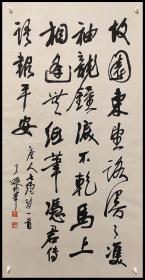 故園東望路漫々雙
袖龍鍾淚不乾馬上
相逢無紙筆憑君傳
語報平安
唐人七絕詩一首